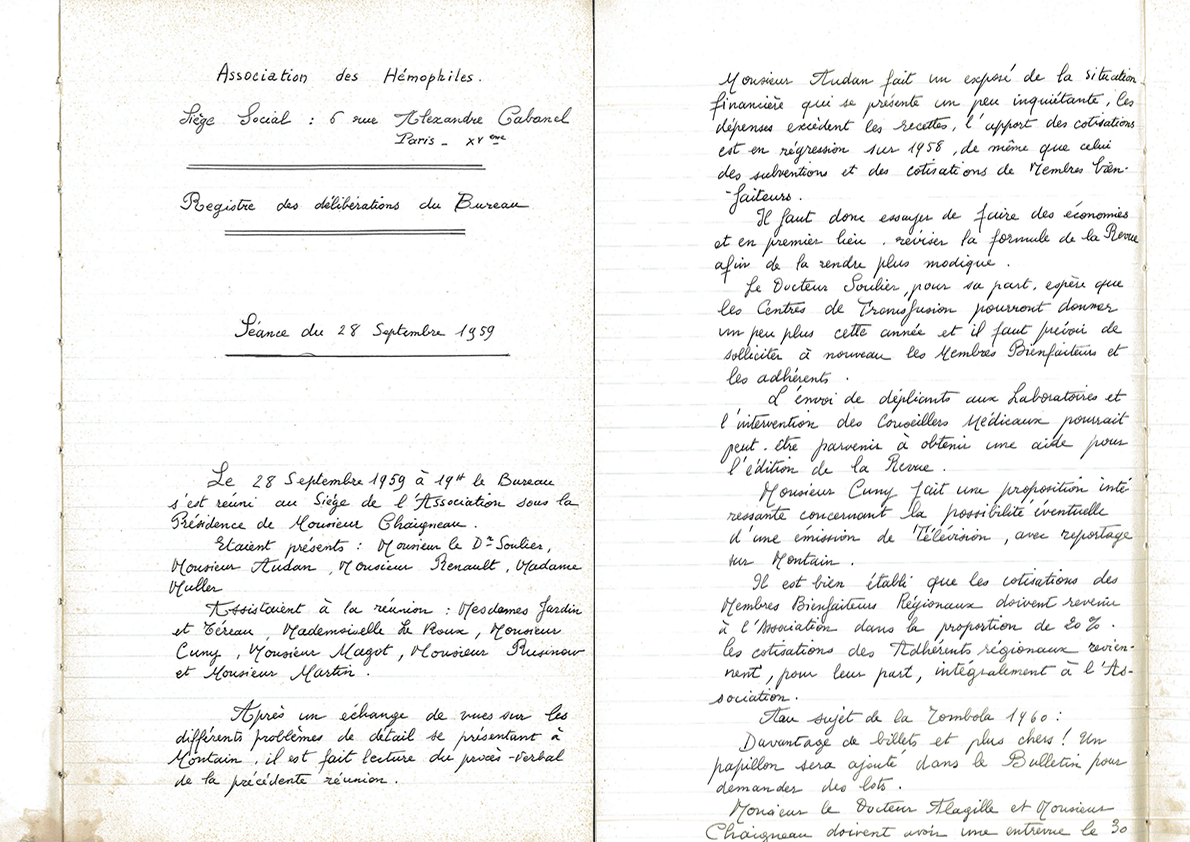 Association des Hémophiles.
Siège Social : 6 rue Alexandre Cabanel
Paris - XVème
Registre des délibérations du Bureau
Séance du 28 Septembre 1959
Le 28 Septembre 1959 à 19H le Bureau
s'est réuni au Siège de l'Association sous la
Présidence de Monsieur Chaigneau.
Etaient présents : Monsieur le Dr Soulier,
Monsieur Audan, Monsieur Renault, Madame
Muller
Assistaient à la réunion : Mesdames Jardin
et Téreau, Mademoiselle Le Roux, Monsieur
Cuny, Monsieur Magot, Monsieur Rusinow
et Monsieur Martin.
Après un échange de vues sur les
différents problèmes de détail se présentant à
Montain, il est fait lecture du procès-verbal
de la précédente réunion.
Monsieur Audan fait un exposé de la situation
financière qui se présente un peu inquiétante, les
dépenses excèdent les recettes, l'apport des cotisations
est en régression sur 1958, de même que celui
des subventions et des cotisations de Membres bien-
-faiteurs.
Il faut donc essayer de faire des économies
et en premier lieu, réviser la formule de la Revue
afin de la rendre plus modique.
Le Docteur Soulier, pour sa part, espère que
les Centres de Transfusion pourront donner
un peu plus cette année et il faut prévoir de
solliciter à nouveau les Membres Bienfaiteurs et
les adhérents.
L'envoi de dépliants aux Laboratoires et
l'intervention des Conseillers Médicaux pourrait
peut-être parvenir à obtenir une aide pour
l'édition de la Revue.
Monsieur Cuny fait une proposition inté-
ressante concernant la possibilité éventuelle
d'une émission de Télévision, avec reportage
sur Montain.
Il est bien établi que les cotisations des
Membres Bienfaiteurs Régionaux doivent revenir
à l'Association dans la proportion de 20%.
les cotisations des Adhérents régionaux revien-
nent, pour leur part, intégralement à l'As-
sociation.
Aau sujet de la Tombola 1960 :
Davantage de billets et plus chers! Un
papillon sera ajouté dans le Bulletin pour
demander des lots.
Monsieur le Docteur Alagille et Monsieur
Chaigneau doivent avoir une entrevue le 30